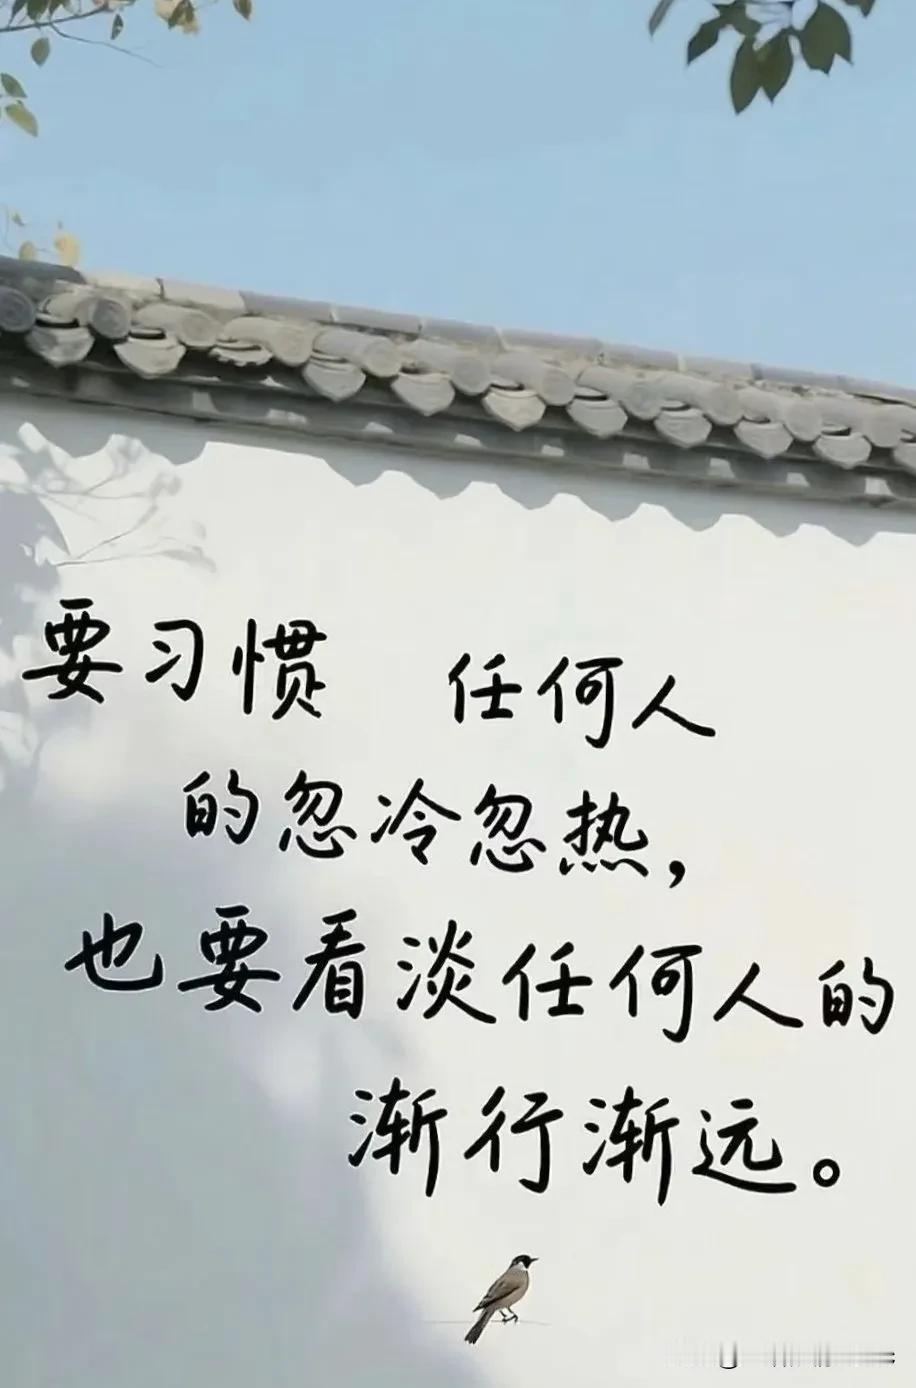 要习惯 任何人
的忽冷忽热，
也要看淡任何人的
渐行渐远。